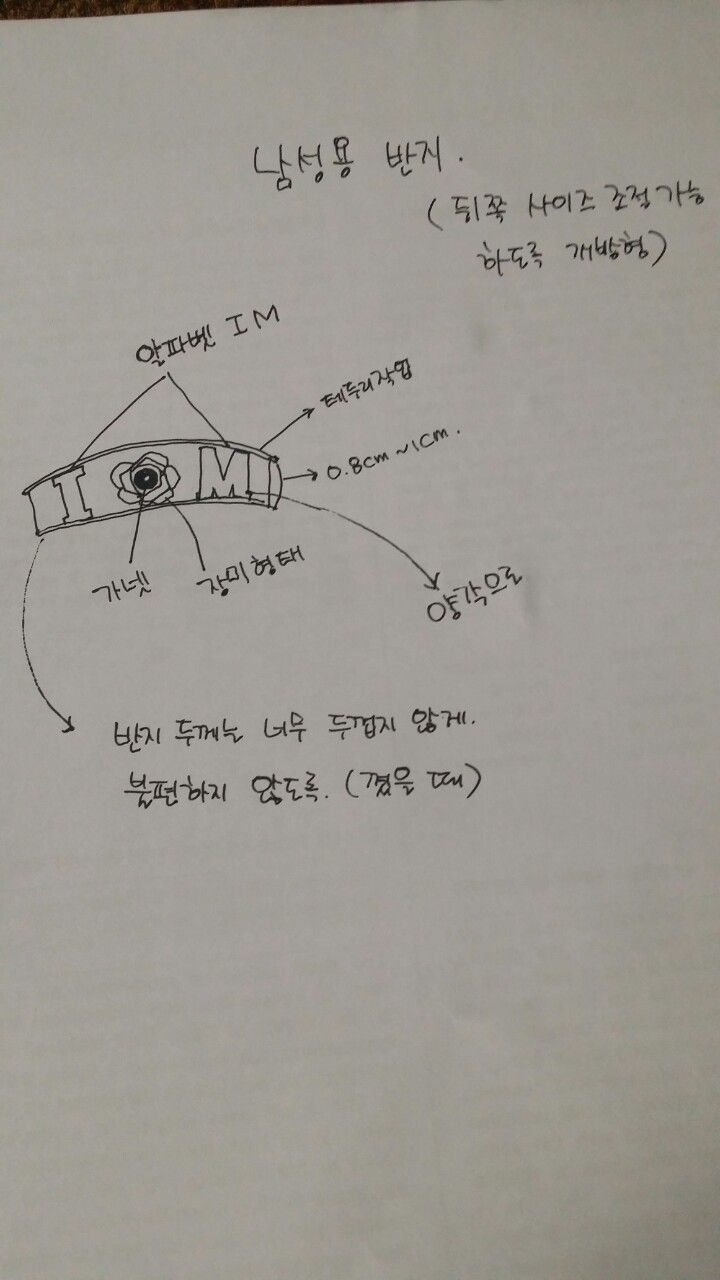 남성용 반지.
(뒤쪽 사이즈 조절가능
하도록 개방형)
알파벳 IM
테두리작업
0.8cm ~1cm.
I M
가넷
장미형태
양각으로
반지 두께는 너무 두껍지 않게.
불편하지 않도록. (꼈을 때)